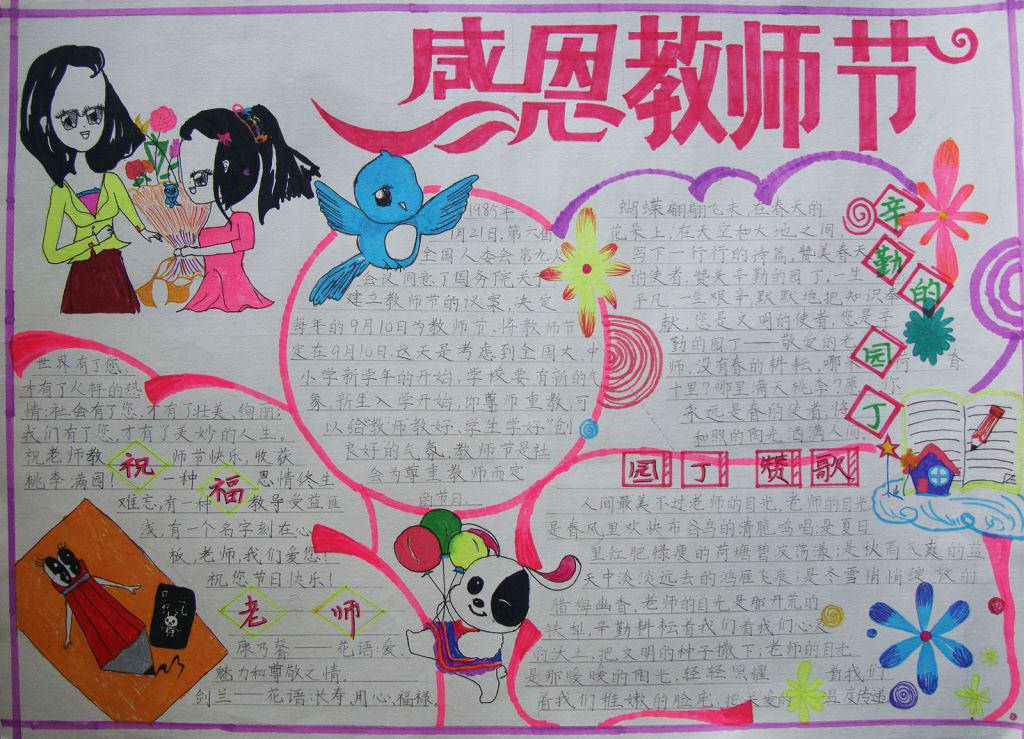 感恩教师节
1985年
1月21日,第六届
全国人大委会第九次
会议同意了国务院关于
建立教师节的议案,决定
每年的9月10日为教师节.将教师节
定在9月10日,这天是考虑到全国大、中
小学新学年的开始,学校要有新的气
象.新生入学开始,即尊师重教,可
以给"教师教好、学生学好"创
良好的气氛.教师节是社
会为尊重教师而定
的节日.
辛勤的园丁
蝴蝶翩翩飞来,在春天的
花朵上,在天空和大地之间
写下一行行的诗篇,赞美春天
的使者,赞美辛勤的园丁。一生
平凡,一生艰辛,默默地把知识奉
献.您是文明的使者,您是辛
勤的园丁——敬爱的老
师,没有春的耕耘,哪来 荷 香
十里?哪里满天桃李?愿 你
永远是春的使者,将
和煦的阳光洒满人间。
世界有了您,
才有了火样的热
情;社会有了您,才有了壮美、绚丽;
我们有了您,才有了美妙的人生。
祝老师教师节快乐,收获
桃李满园!一种恩情终生
难忘,有一种教导受益匪
浅,有一个名字刻在心
板,老师,我们爱您!
祝您节日快乐!
祝福
老师
康乃馨——花语:爱、
魅力和尊敬之情.
剑兰——花语:长寿、用心、福禄.
园丁赞歌
人间最美不过老师的目光.老师的目光
是春风里欢快布谷鸟的清脆鸣唱;是夏日
里红肥绿瘦的荷塘碧波荡漾;是秋高气爽的蓝
天中淡淡远去的鸿雁飞哀;是冬雪悄悄绽放的
腊梅幽香.老师的目光是那开荒的
铁犁,辛勤耕耘着我们着我们心灵
的沃土,把文明的种子撒下;老师的目光
是那暖暖的阳光,轻轻照耀 着我们
着我们稚嫩的脸庞,把关爱的 温度传递